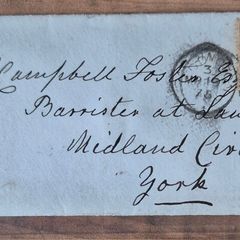 Campbell Foster Es
Barrister at Law
Midland Circ
York